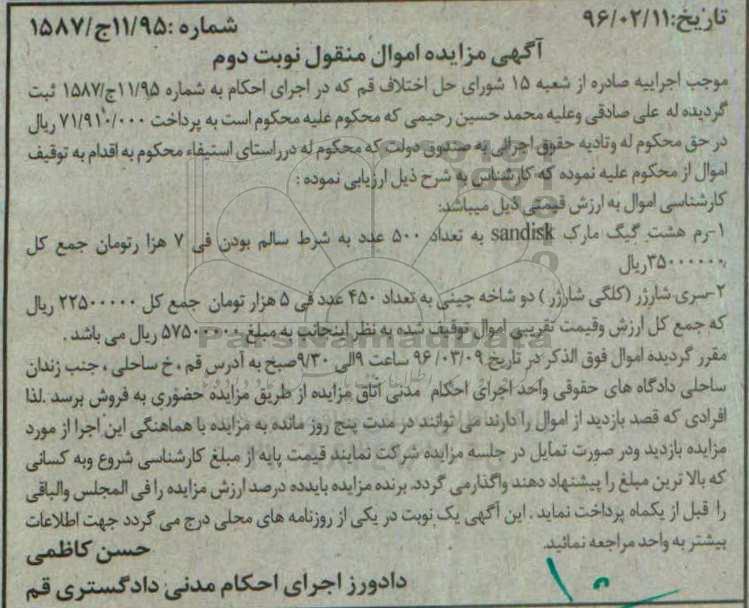 تاریخ:۹۶/۰۲/۱۱ شماره :۱۱/۹۵ج/۱۵۸۷
آگهی مزایده اموال منقول نوبت دوم
موجب اجراییه صادره از شعبه ۱۵ شورای حل اختلاف قم که در اجرای احکام به شماره ۱۱/۹۵ج/۱۵۸۷ ثبت
گردیده له علی صادقی وعلیه محمد حسین رحیمی که محکوم علیه محکوم است به پرداخت ۷۱/۹۱۰/۰۰۰ ریال
در حق محکوم له وتادیه حقوق اجرائی به صندوق دولت که محکوم له درراستای استیفاء محکوم به اقدام به توقیف
اموال از محکوم علیه نموده که کارشناس به شرح ذیل ارزیابی نموده :
کارشناسی اموال به ارزش قیمتی ذیل میباشد:
۱-رم هشت گیگ مارک sandisk به تعداد ۵۰۰ عدد به شرط سالم بودن فی ۷ هزا رتومان جمع کل
۳۵۰۰۰۰۰۰ریال
۲-سری شارژر (کلگی شارژر) دو شاخه چینی به تعداد ۴۵۰ عدد فی ۵ هزار تومان جمع کل ۲۲۵۰۰۰۰۰ ریال
که جمع کل ارزش وقیمت تقریبی اموال توقیف شده به نظر اینجانب به مبلغ ۵۷۵۰۰۰۰۰ ریال می باشد .
مقرر گردیده اموال فوق الذکر در تاریخ ۹۶/۰۳/۰۹ ساعت ۹الی ۹/۳۰صبح به آدرس قم ، خ ساحلی ، جنب زندان
ساحلی دادگاه های حقوقی واحد اجرای احکام مدنی اتاق مزایده از طریق مزایده حضوری به فروش برسد .لذا
افرادی که قصد بازدید از اموال را دارند می توانند در مدت پنج روز مانده به مزایده با هماهنگی این اجرا از مورد
مزایده بازدید ودر صورت تمایل در جلسه مزایده شرکت نمایند قیمت پایه از مبلغ کارشناسی شروع وبه کسانی
که بالا ترین مبلغ را پیشنهاد دهند واگذارمی گردد. برنده مزایده بایدده درصد ارزش مزایده را فی المجلس والباقی
را قبل از یکماه پرداخت نماید . این آگهی یک نوبت در یکی از روزنامه های محلی درج می گردد جهت اطلاعات
بیشتر به واحد مراجعه نمائید.
حسن کاظمی
دادورز اجرای احکام مدنی دادگستری قم
ParsNamadData